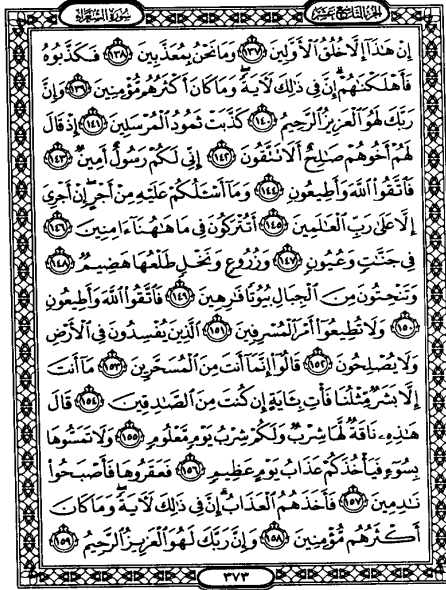 سورة الشعراء الجزء التاسع عشر
إِنْ هَٰذَا إِلَّا خُلُقُ الْأَوَّلِينَ ١٣٧ وَمَا نَحْنُ بِمُعَذَّبِينَ ١٣٨ فَكَذَّبُوهُ
فَأَهْلَكْنَٰهُمْ إِنَّ فِي ذَٰلِكَ لَآيَةً وَمَا كَانَ أَكْثَرُهُم مُّؤْمِنِينَ ١٣٩ وَإِنَّ
رَبَّكَ لَهُوَ الْعَزِيزُ الرَّحِيمُ ١٤٠ كَذَّبَتْ ثَمُودُ الْمُرْسَلِينَ ١٤١ إِذْ قَالَ
لَهُمْ أَخُوهُمْ صَٰلِحٌ أَلَا تَتَّقُونَ ١٤٢ إِنِّي لَكُمْ رَسُولٌ أَمِينٌ ١٤٣
فَاتَّقُوا اللَّهَ وَأَطِيعُونِ ١٤٤ وَمَا أَسْـَٔلُكُمْ عَلَيْهِ مِنْ أَجْرٍ إِنْ أَجْرِيَ
إِلَّا عَلَىٰ رَبِّ الْعَٰلَمِينَ ١٤٥ أَتُتْرَكُونَ فِي مَا هَٰهُنَا ءَامِنِينَ ١٤٦
فِي جَنَّٰتٍ وَعُيُونٍ ١٤٧ وَزُرُوعٍ وَنَخْلٍ طَلْعُهَا هَضِيمٌ ١٤٨
وَتَنْحِتُونَ مِنَ الْجِبَالِ بُيُوتًا فَٰرِهِينَ ١٤٩ فَاتَّقُوا اللَّهَ وَأَطِيعُونِ
١٥٠ وَلَا تُطِيعُوا أَمْرَ الْمُسْرِفِينَ ١٥١ الَّذِينَ يُفْسِدُونَ فِي الْأَرْضِ
وَلَا يُصْلِحُونَ ١٥٢ قَالُوا إِنَّمَا أَنتَ مِنَ الْمُسَحَّرِينَ ١٥٣ مَا أَنتَ
إِلَّا بَشَرٌ مِّثْلُنَا فَأْتِ بِـَٔايَةٍ إِن كُنتَ مِنَ الصَّٰدِقِينَ ١٥٤ قَالَ
هَٰذِهِ نَاقَةٌ لَّهَا شِرْبٌ وَلَكُمْ شِرْبُ يَوْمٍ مَّعْلُومٍ ١٥٥ وَلَا تَمَسُّوهَا
بِسُوءٍ فَيَأْخُذَكُمْ عَذَابُ يَوْمٍ عَظِيمٍ ١٥٦ فَعَقَرُوهَا فَأَصْبَحُوا
نَٰدِمِينَ ١٥٧ فَأَخَذَهُمُ الْعَذَابُ إِنَّ فِي ذَٰلِكَ لَآيَةً وَمَا كَانَ
أَكْثَرُهُم مُّؤْمِنِينَ ١٥٨ وَإِنَّ رَبَّكَ لَهُوَ الْعَزِيزُ الرَّحِيمُ ١٥٩
٣٧٣